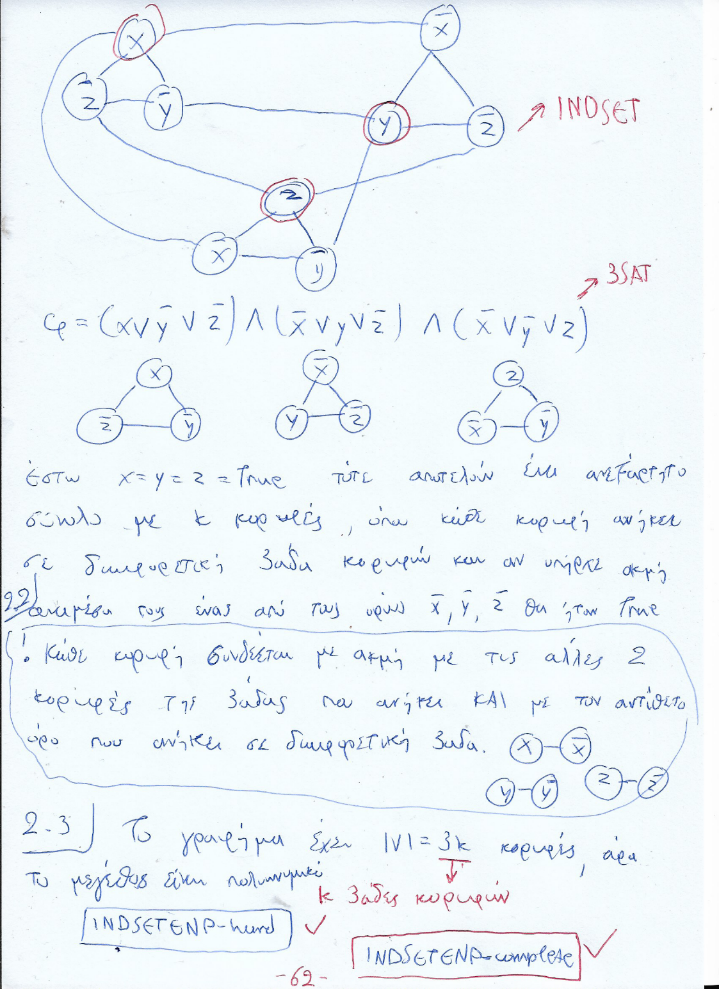 x x̄
z̄ ȳ y z̄ ↗ INDSET
z
x̄ ȳ
↗ 3SAT
φ = (x ∨ ȳ ∨ z̄) ∧ (x̄ ∨ y ∨ z̄) ∧ (x̄ ∨ ȳ ∨ z)
x x̄ z
z̄ ȳ y z̄ x̄ ȳ
έστω x = y = z = True τότε αποτελούν ένα ανεξάρτητο
σύνολο με k κορυφές, όπου κάθε κορυφή ανήκει
σε διαφορετική 3άδα κορυφών και αν υπήρχε ακμή
2.2) ανάμεσα τους ένας από τους όρους x̄, ȳ, z̄ θα ήταν True
! Κάθε κορυφή συνδέεται με ακμή με τις άλλες 2
κορυφές της 3άδας που ανήκει ΚΑΙ με τον αντίθετο
όρο που ανήκει σε διαφορετική 3άδα. x - x̄
y - ȳ z - z̄
2.3) Το γράφημα έχει |V| = 3k κορυφές, άρα
το μέγεθος είναι πολυωνυμικό
k 3άδες κορυφών
INDSET∈NP-hard ✓
INDSET∈NP-complete ✓
-62-